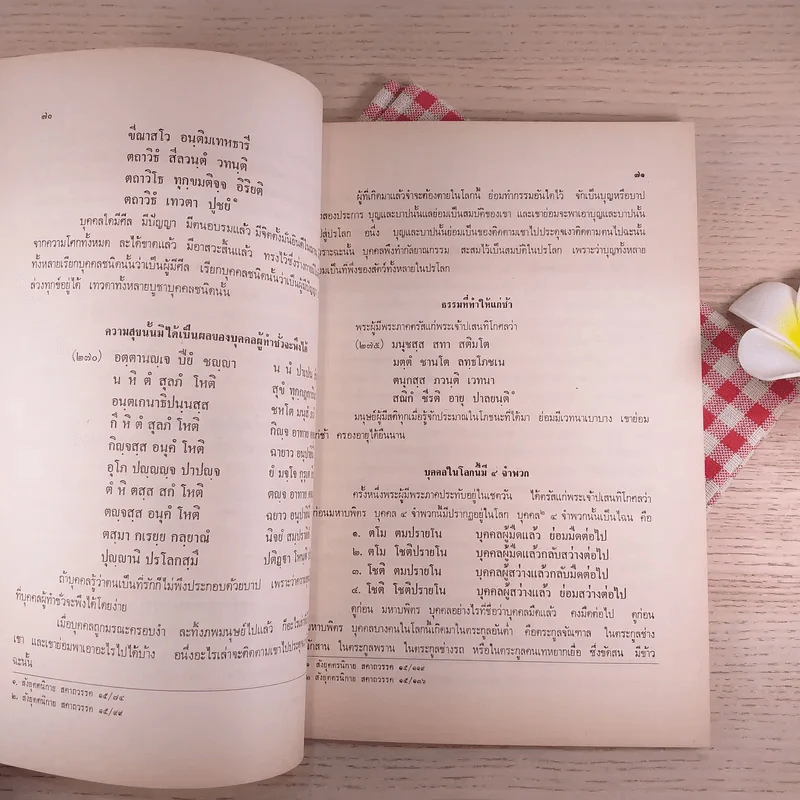 ๗๐
ขีณาสโว อนฺติมเทหธารี
ตถาวิธํ สีลวนฺตํ วทนฺติ
ตถาวิโธ ทุกฺขมติจฺจ อิริยติ
ตถาวิธํ เทวตา ปูชยํ
บุคคลใดมีศีล มีปัญญา มีตนอบรมแล้ว มีจิตตั้งมั่น
จากความโศกทั้งหมด ละได้ขาดแล้ว มีอาสวะสิ้นแล้ว ทรงไว้ซึ่งร่างกาย
ทั้งหลายเรียกบุคคลชนิดนั้นว่าเป็นผู้มีศีล เรียกบุคคลชนิดนั้นว่าเป็นผู้มีปัญญา
ล่วงทุกข์อยู่ได้ เทวดาทั้งหลายบูชาบุคคลชนิดนั้น
ความสุขนั้นมิได้เป็นผลของบุคคลผู้ทำชั่วจะพึงได้
(๒๗๐) อตฺตานญฺเจ ปิยํ ชญฺญา
น หิ ตํ สุลภํ โหติ สุขํ
อนฺตเกนาธิปนฺนสฺส ชหโต
กึ หิ ตํ สุลภํ โหติ กิญฺจ อาทาย
กิญฺจสฺส อนุคํ โหติ ฉายาว
อุโภ ปญฺญญฺจ ปาปญฺจ ยํ มจฺโจ
ตํ หิ ตสฺส สกํ โหติ ตญฺจ อาทาย
ตญฺจสฺส อนุคํ โหติ ฉายาว
ตสฺมา กเรยฺย กลฺยาณํ นิจยํ
ปุญฺญานิ ปรโลกสฺมึ ปติฏฺฐา
ถ้าบุคคลรู้ว่าตนเป็นที่รักก็ไม่พึงประกอบด้วยบาป
ที่บุคคลผู้ทำชั่วจะพึงได้โดยง่าย
เมื่อบุคคลถูกมรณะครอบงำ ละทิ้งภพมนุษย์ไปแล้ว
เขา และเขาย่อมพาเอาอะไรไปได้บ้าง อนึ่งอะไรเล่าจะติดตามเขาไป
ฉะนั้น
๑. สังยุตตนิกาย สคาถวรรค ๑๕/๗๔
๒. สังยุตตนิกาย สคาถวรรค ๑๕/๙๙
๗๑
ผู้ที่เกิดมาแล้วจำจะต้องตายในโลกนี้ ย่อมทำกรรมอันใดไว้ จักเป็นบุญหรือบาป
สองประการ บุญและบาปนั้นแลย่อมเป็นสมบัติของเขา และเขาย่อมจะพาเอาบุญและบาปนั้น
ปสู่ปรโลก อนึ่ง บุญและบาปนั้นย่อมเป็นของติดตามเขาไปประดุจเงาติดตามตนไปฉะนั้น
เพราะฉะนั้น บุคคลพึงทำกัลยาณกรรม สะสมไว้เป็นสมบัติในปรโลก เพราะว่าบุญทั้งหลาย
ย่อมเป็นที่พึ่งของสัตว์ทั้งหลายในปรโลก
ธรรมที่ทำให้แก่ช้า
พระผู้มีพระภาคตรัสแก่พระเจ้าปเสนทิโกศลว่า
(๒๗๕) มนุชสฺส สทา สติมโต
มตฺตํ ชานโต ลทฺธโภชเน
ตนุกสฺส ภวนฺติ เวทนา
สณิกํ ชีรติ อายุ ปาลยนฺติ
มนุษย์ผู้มีสติทุกเมื่อรู้จักประมาณในโภชนะที่ได้มา ย่อมมีเวทนาเบาบาง เขาย่อม
แก่ช้า ครองอายุได้ยืนนาน
บุคคลในโลกนี้มี ๔ จำพวก
ครั้งหนึ่งพระผู้มีพระภาคประทับอยู่ในเชตวัน ได้ตรัสแก่พระเจ้าปเสนทิโกศลว่า
ดูก่อนมหาบพิตร บุคคล ๔ จำพวกนี้มีปรากฏอยู่ในโลก บุคคล๒ ๔ จำพวกนั้นเป็นไฉน คือ
๑. ตโม ตมปรายโน บุคคลผู้มืดแล้ว ย่อมมืดต่อไป
๒. ตโม โชติปรายโน บุคคลผู้มืดแล้วกลับสว่างต่อไป
๓. โชติ ตมปรายโน บุคคลผู้สว่างแล้วกลับมืดต่อไป
๔. โชติ โชติปรายโน บุคคลผู้สว่างแล้ว ย่อมสว่างต่อไป
ดูก่อน มหาบพิตร บุคคลอย่างที่ชื่อว่าบุคคลมืดแล้ว คงมืดต่อไป ดูก่อน
มหาบพิตร บุคคลบางคนในโลกนี้เกิดมาในตระกูลอันต่ำ คือตระกูลจัณฑาล ในตระกูลช่าง
จักสาน ในตระกูลพราน ในตระกูลช่างรถ หรือในตระกูลคนเทหยากเยื่อ ซึ่งขัดสน มีข้าว
สังยุตตรนิกาย สคาถวรรค ๑๕/๑๑๙
สังยุตตรนิกาย สคาถวรรค ๑๕/๑๓๖